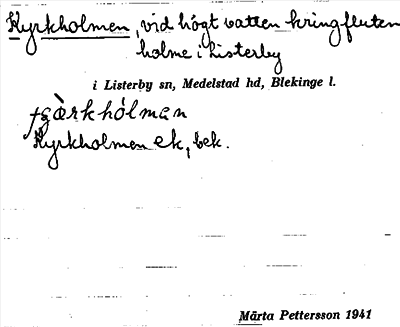 Kyrkholmen, vid högt vatten kringfluten
holme i Listerby
i Listerby sn, Medelstad hd, Blekinge l.
Kyrkholmen ek, bek.
Märta Pettersson 1941